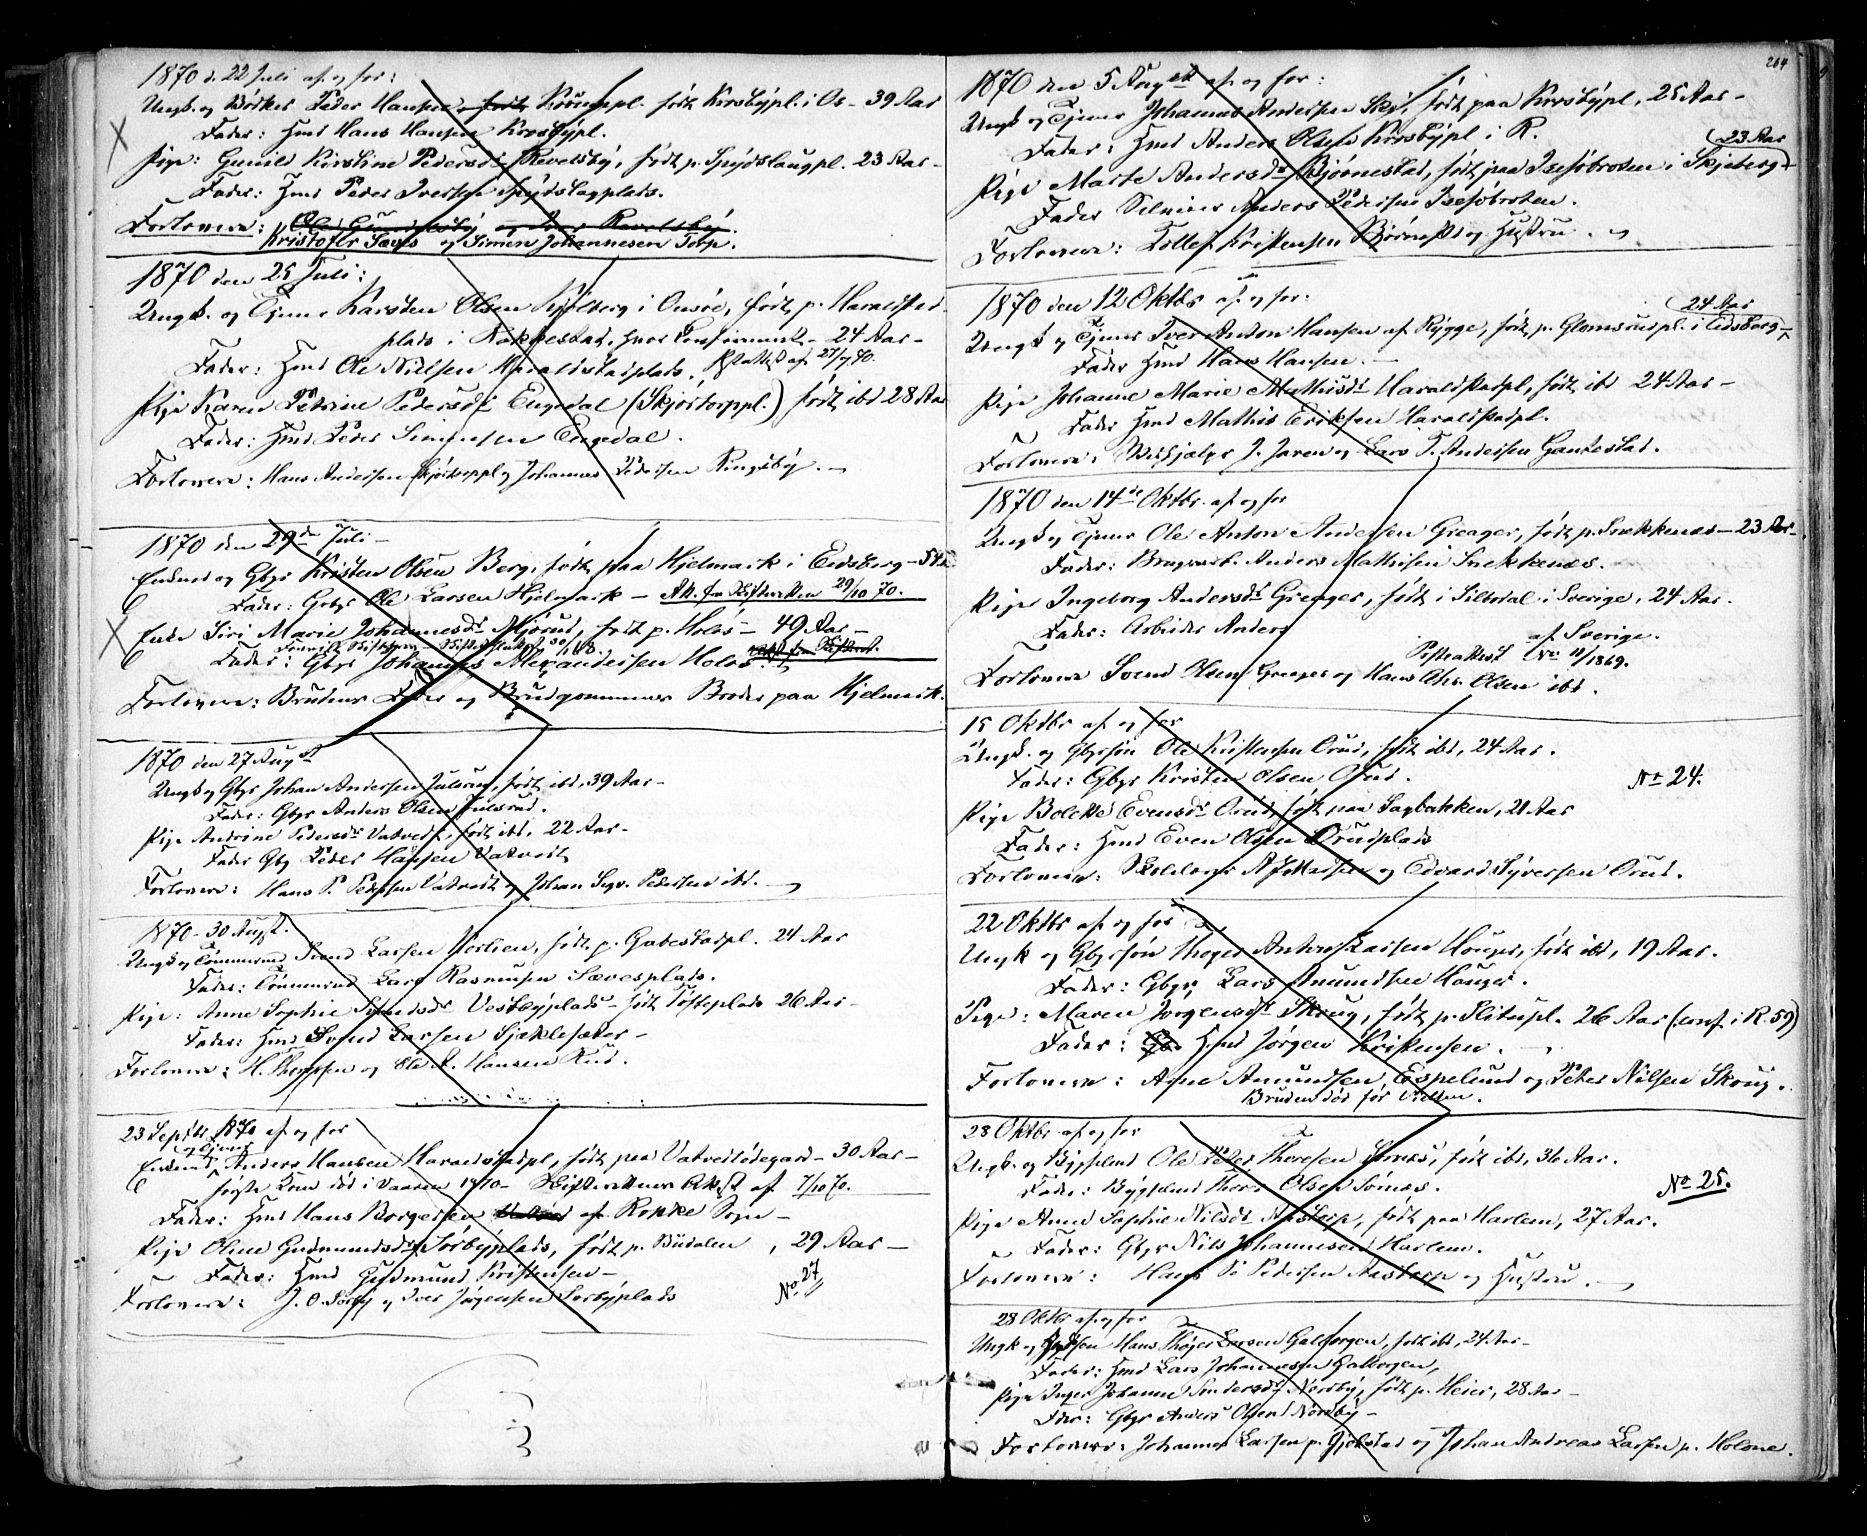 1870 d. 22 Juli af og for:
Ungk. og Bödker Peder Hansen Krosbypl. født Krosbypl. i Os - 39 Aar
Fader: Hmd Hans Hansen Krosbypl.
Pige: Gunild Kirstine Pedersdr Revelsby, født p. Spydslaugpl. - 23 Aar -
Fader: Hmd Peder Iversen Spydslagplads.
Forlovere: Ole Gundersby og Iver Revelsby.
Kristoffer Sæves og Simen Johannesen Torp.
1870 den 25 Juli:
Ungk. og Tjener Karsten Olsen Kjølberg i Onsøe, født p. Haraldstad
plads i Rakkestad, hvor Confirmeret - 24 Aar -
Fader: Hmd Ole Nielsen Haraldstadplads. Attest af 27/7 70.
Pige Karen Petrine Pedersdr Engedal (Skjørtorppl.) født ibd 28 Aar
Fader: Hmd Peder Simensen Engedal.
Forlovere: Hans Andersen Skjørtorppl og Johannes Pedersen Ringsby.
1870 den 29de Juli -
Enkmd og Gbr Kristen Olsen Berg, født paa Hjelmark i Eidsberg - 54
Fader: Gbr Ole Larsen Hjelmark - Att. fra Skifteretten 29/10 70.
Enke Siri Marie Johannesdr Mjørud, født p. Holøs - 49 Aar -
Fader: Gbr Johannes Alexandersen Holøs
Forlovere: Brudens Fader og Brudgommens Broder paa Hjelmark.
1870 den 27 August
Ungk og Gbr Johan Andersen Julsrud, født ibd, 39 Aar -
Fader: Gbr Anders Olsen Julsrud.
Pige Andrine Pedersdr Vatvedt, født ibd, 22 Aar -
Fader Gbr Peder Hansen Vatvedt
Forlovere: Hans P. Pedersen Vatvedt og Johan Pedersen ibd.
1870 - 30 August.
Ungk og Tömmermd Svend Larsen Horlien, født p. Gabestadpl. 24 Aar
Fader: Tömmermd Lars Rasmusen Sævesplads.
Pige: Anne Sophie Svendsdr Vestbyplads - født Toftepladsen 26 Aar -
Fader: Hmd Svend Larsen Sjaklesæter -
Forlovere: H. Thoresen og Ole A. Hansen Rud.
23 Septbr 1870 af og for
og Tjener
Enkmd Anders Hansen Haraldstadpl, født paa Vatvedtødegaard - 30 Aar -
første Kone død i Vaaren 1870 - Skifterettens Attest af 7/10 70.
Fader: Hmd Hans Borgersen af Rokke Sogn -
Pige Oline Gudmundsdr Sørbyplads, født p. Büdalen, 29 Aar -
Fader: Hmd Gudmund Kristensen -
Forlovere: J. O. Sørby og Iver Jørgensen Sørbyplads
No 27
264
1870 den 5 August af og for:
Ungk og Tjener Johannes Andersen født paa Krosbypl, 25 Aar -
Fader: Hmd Anders Olsen Krosbypl i R.
23 Aar
Pige Marte Andersdr Bjørnestad, født paa Isesöbroten i Skjeberg
Fader Selveier Anders Pedersen Isesöbroten.
Forlovere: Tollef Kristensen Bjørnestad og Hustru.
1870 den 12 Oktbr af og for:
24 Aar
Ungk og Tjener Iver Anton Hansen af Rygge, født p. Glomsrudpl. i Eidsberg
Fader Hmd Hans Hansen.
Pige Johanne Marie Mathisdr Haraldstadpl, født ibd 24 Aar -
Fader Hmd Mathis Eriksen Haraldstadpl.
Forlovere: J. Jaren og Lars T. Andersen Gautestad.
1870 den 14de Oktbr. af og for
Ungk og Tjener Ole Anton Andersen Greager, født p. Snekkenæs - 23 Aar -
Fader: Brugsarb. Anders Mathisen Snekkenæs.
Pige Ingeborg Andersdr Greager, født i Silbodal i Sverige, 24 Aar.
Fader: Arbeider Anders af Sverige.
Præsteattest No 18/1869.
Forlovere Svend Olsen Greager og Hans Chr. Olsen ibd.
15 Oktbr af og for
Ungk. og Gbrsön Ole Kristensen Orud, født ibd, 24 Aar.
Fader: Gbr Kristen Olsen Orud.
No 24.
Pige Bolette Evensdr Orud, født paa Sagbakken, 21 Aar
Fader: Hmd Even Olsen Orudplads
Forlovere: Skolelærer A. J. Madsen og Edvard Syversen Orud.
22 Oktbr af og for
Ungk og Gbrsøn Thoger Anthon Larsen Houger, født ibd, 19 Aar.
Fader: Gbr Lars Amundsen Houger.
Pige: Maren Jörgensdr Skoug, født p. Slitupl. 26 Aar (conf. i R. 59)
Fader: Hmd Jörgen Kristensen.
Forlovere: Arne Amundsen Espelund og Peter Nilsen Skoug.
Bruden død før Vielsen.
28 Oktbr af og for
Ungk. og Bygselmd Ole Peter Thoresen Sømæs, født ibd, 36 Aar.
Fader: Bygselmd Thore Olsen Sømæs.
No 25.
Pige Anne Sophie Nilsdr Aastorp, født paa Harlem, 27 Aar.
Fader: Gbr Nils Johannesen Harlem.
Forlovere: Hans P. Pedersen Aastorp og Hustru.
28 Oktbr af og for
Ungk og Hans Thöger Larsen Galtorgen, født ibd, 24 Aar -
Fader: Hmd Lars Johannesen Galtorgen,
Pige Inger Johanne Andersdr Nordby, født p. Heier, 28 Aar -
Fader: Gbr Anders Olsen Nordby -
Forlovere: Johannes Larsen p. Gjølstad og Johan Andreas Larsen p. Holene.